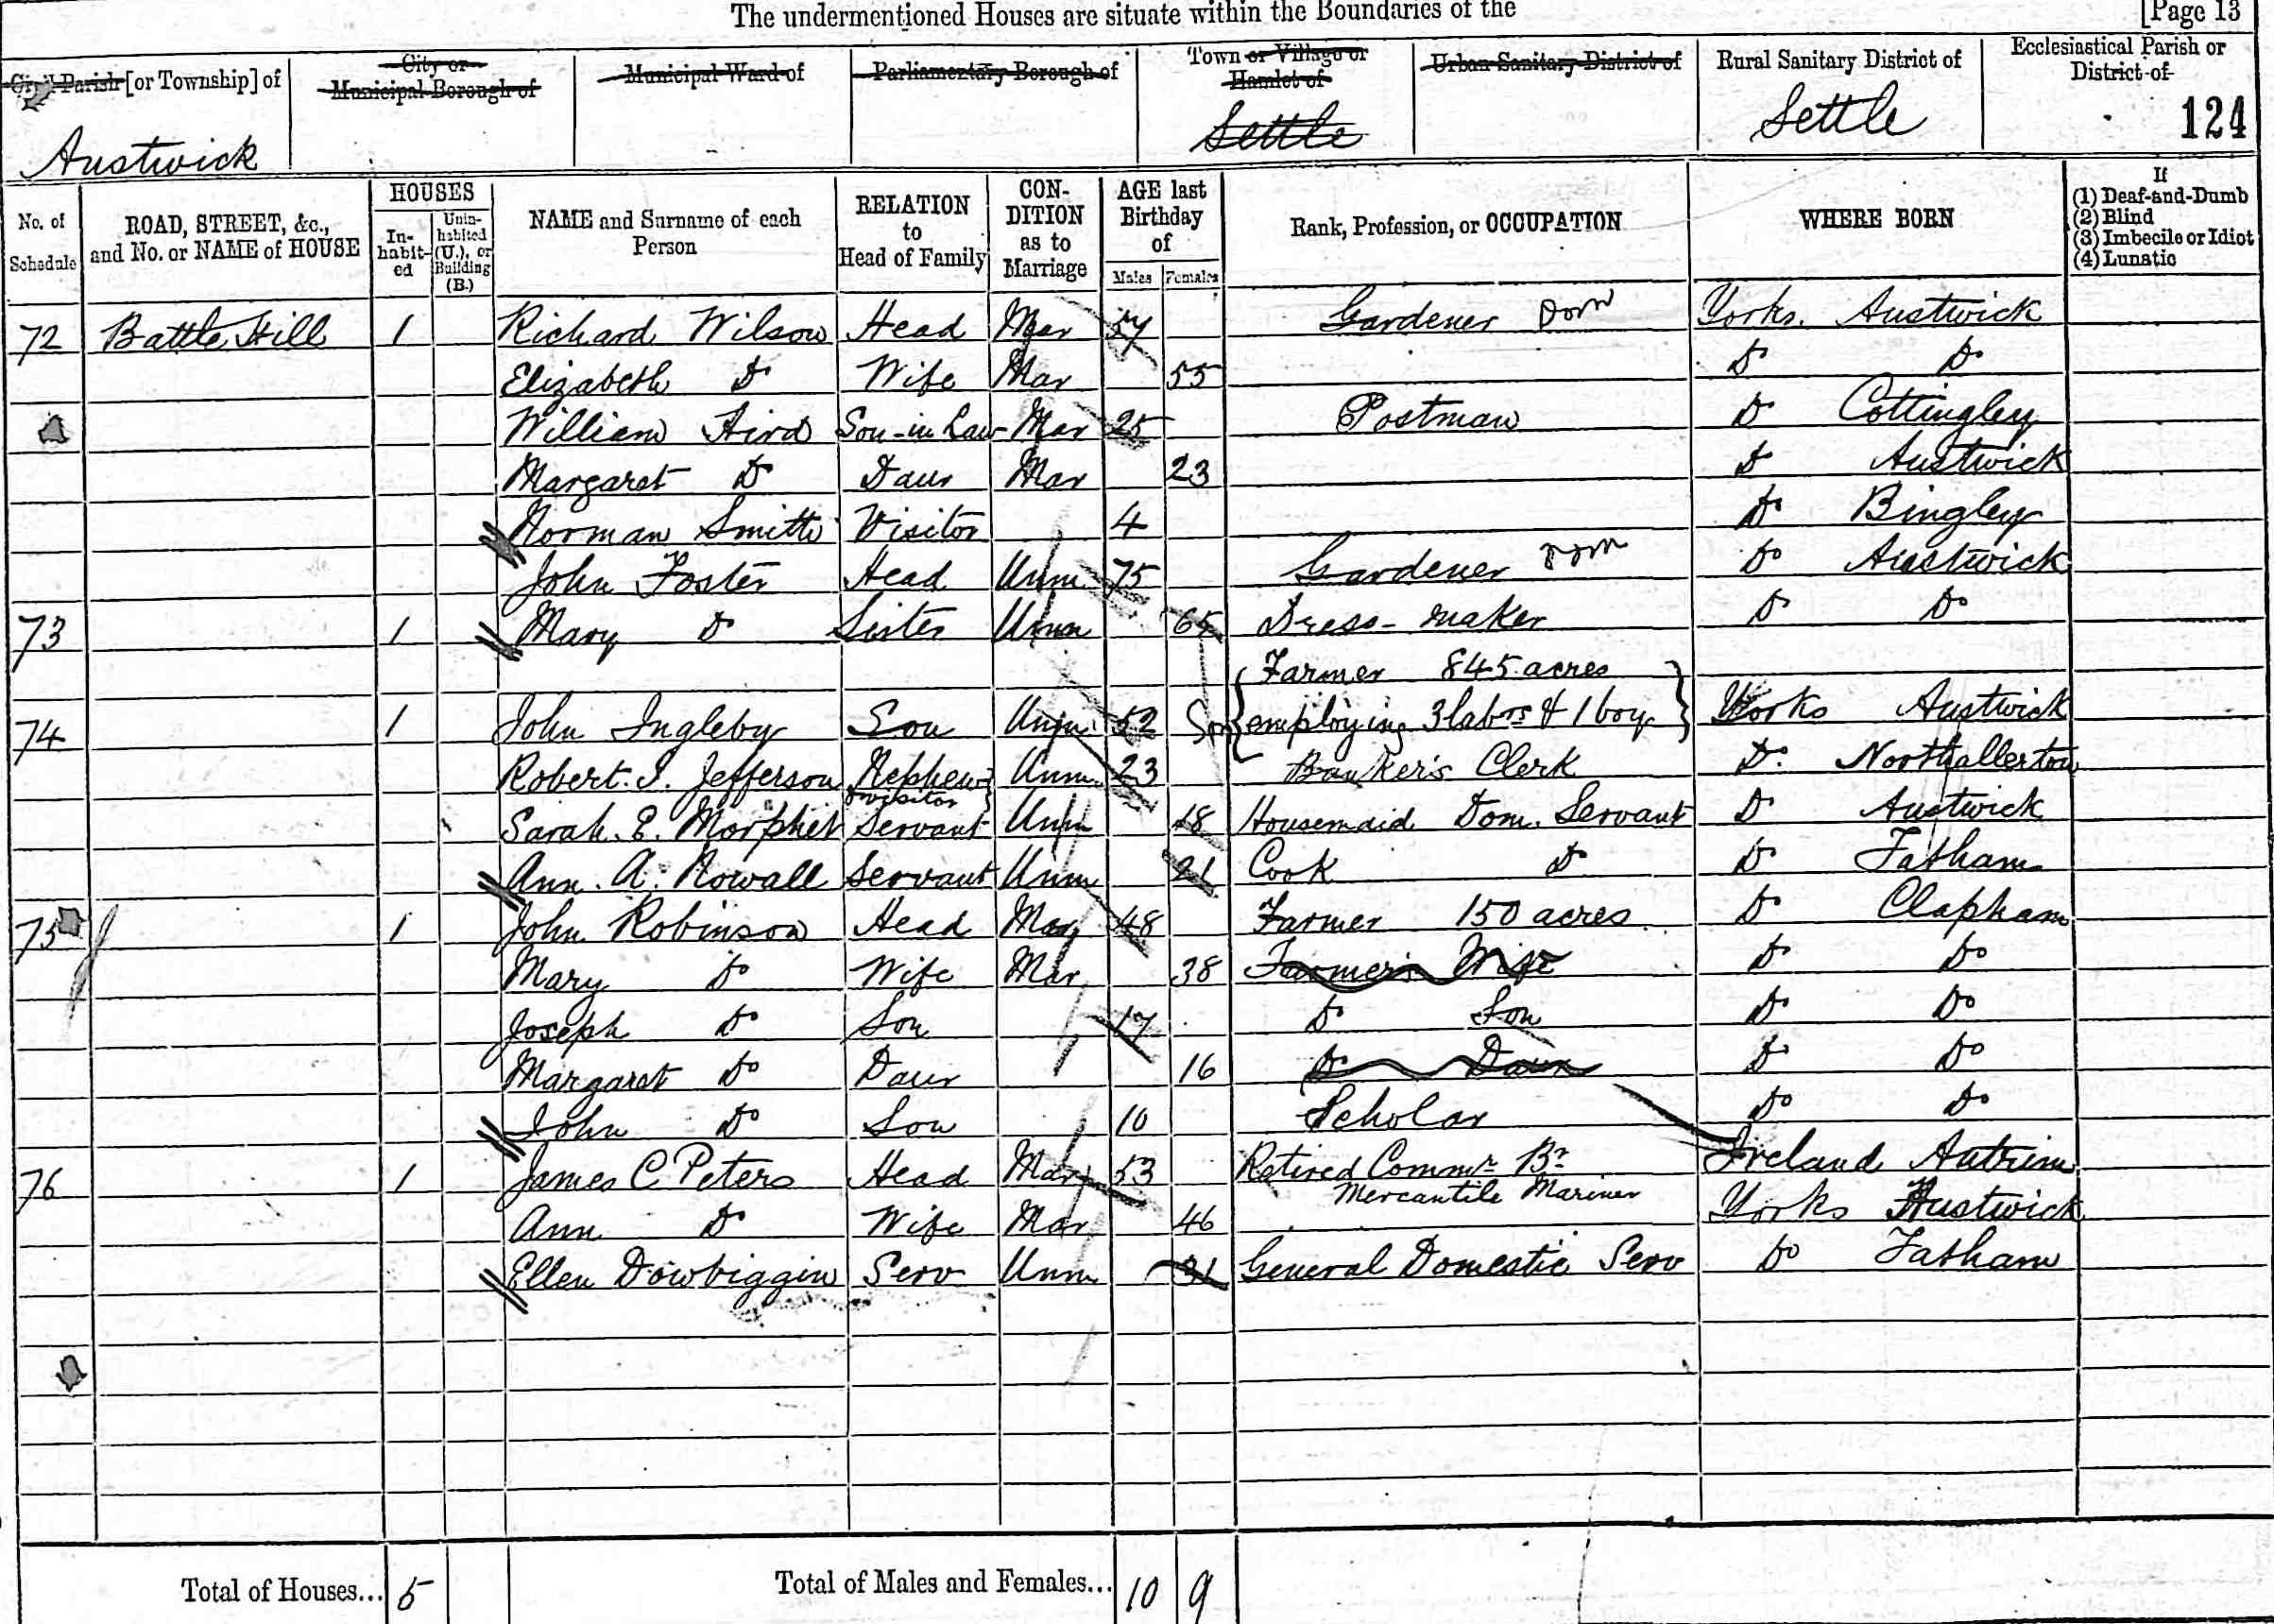 The undermentioned Houses are situate within the Boundaries of the [Page 13
Civil Parish [or Township] of City or Municipal Borough of Municipal Ward of Parliamentary Borough of Town or Village or Hamlet of Urban Sanitary District of Rural Sanitary District of Ecclesiastical Parish or District of
Austwick Settle Settle 124
No. of Schedule ROAD, STREET, &c., and No. or NAME of HOUSE HOUSES Inhabited Uninhabited (U.), or Building (B.) NAME and Surname of each Person RELATION to Head of Family CONDITION as to Marriage AGE last Birthday of Males Females Rank, Profession, or OCCUPATION WHERE BORN If (1) Deaf-and-Dumb (2) Blind (3) Imbecile or Idiot (4) Lunatic
72 Battle Hill 1 Richard Wilson Head Mar 57 Gardener Dom Yorks. Austwick
Elizabeth Do Wife Mar 55 Do Do
William Aird Son-in-Law Mar 25 Postman Do Cottingley
Margaret Do Daur Mar 23 Do Austwick
Norman Smith Visitor 4 Do Bingley
John Foster Head Unm 75 Gardener Dom Do Austwick
73 1 Mary Do Sister Unm 65 Dress-maker Do Do
Farmer 845 acres
74 1 John Ingleby Son Unm 52 Son employing 3 labrs & 1 boy Yorks Austwick
Robert. I. Jefferson Nephew Unm 23 Banker's Clerk Do Northallerton
visitor
Sarah. E. Morphet Servant Unm 18 Housemaid Dom. Servant Do Austwick
Ann. A. Nowall Servant Unm 21 Cook Do Do Tatham
75 1 John Robinson Head Mar 48 Farmer 150 acres Do Clapham
Mary Do Wife Mar 38 Farmer's Wife Do Do
Joseph Do Son 17 Do Son Do Do
Margaret Do Daur 16 Do Daur Do Do
John Do Son 10 Scholar Do Do
76 1 James C Peters Head Mar 53 Retired Commr Br Ireland Antrim
Mercantile Mariner
Ann Do Wife Mar 46 Yorks Austwick
Ellen Dowbiggin Serv Unm 31 General Domestic Serv Do Tatham
Total of Houses... 5 Total of Males and Females... 10 9